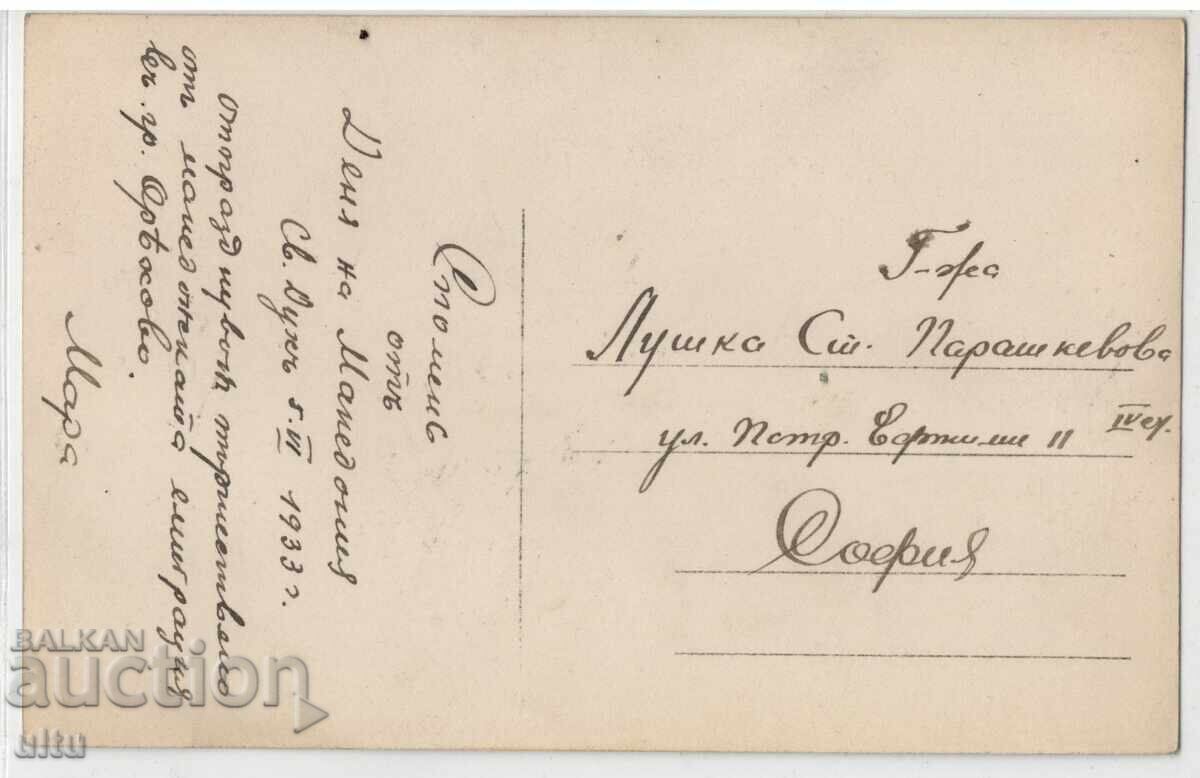 Споменъ
отъ
Деня на Македония
Св. Духъ 5.VI 1933 г.
отпразднуванъ тържествено
отъ македонската емиграция
въ гр. Орѣхово.
Мара
Г-жа
Лушка Ст. Парашкевова
ул. Патр. Евтимий 11 IV ет.
София
BALKAN
auction
ultu